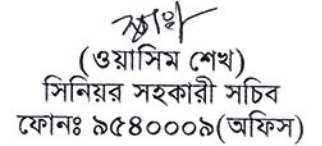 (ওয়াসিম শেখ)
সিনিয়র সহকারী সচিব
ফোনঃ ৯৫৪০০০৯(অফিস)